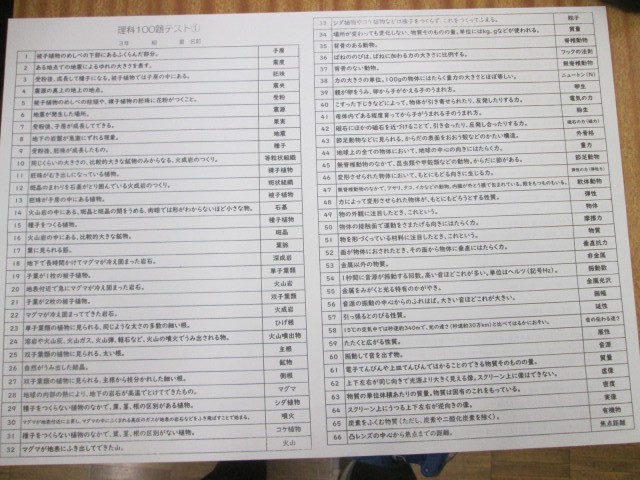 理科100題テスト①
3年　組　番　名前
1 被子植物のめしべの下部にあるふくらんだ部分。 子房
2 ある地点での地震によるゆれの大きさを表す。 震度
3 受粉後、成長して種子になる。被子植物では子房の中にある。 胚珠
4 震源の真上の地上の地点。 震央
5 被子植物のめしべの柱頭や、裸子植物の胚珠に花粉がつくこと。 受粉
6 地震が発生した場所。 震源
7 受粉後、子房が成長してできる。 果実
8 地下の岩盤が急激にずれる現象。 地震
9 受粉後、胚珠が成長したもの。 種子
10 同じくらいの大きさの、比較的大きな鉱物のみからなる、火成岩のつくり。 等粒状組織
11 胚珠がむき出しになっている植物。 裸子植物
12 斑晶のまわりを石基がとり囲んでいる火成岩のつくり。 斑状組織
13 胚珠が子房の中にある植物。 被子植物
14 火山岩の中にある、斑晶と斑晶の間をうめる、肉眼では形がわからないほど小さな物。 石基
15 種子をつくる植物。 種子植物
16 火山岩の中にある、比較的大きな鉱物。 斑晶
17 葉に見られる筋。 葉脈
18 地下で長時間かけてマグマが冷え固まった岩石。 深成岩
19 子葉が1枚の被子植物。 単子葉類
20 地表付近で急にマグマが冷え固まった岩石。 火山岩
21 子葉が2枚の被子植物。 双子葉類
22 マグマが冷え固まってできた岩石。 火成岩
23 単子葉類の植物に見られる、同じような太さの多数の細い根。 ひげ根
24 溶岩や火山灰、火山ガス、火山弾、軽石など、火山の噴火でうみ出される物。 火山噴出物
25 双子葉類の植物に見られる、太い根。 主根
26 自然がうみ出した結晶。 鉱物
27 双子葉類の植物に見られる、主根から枝分かれした細い根。 側根
28 地球の内部の熱により、地下の岩石が高温でとけてできたもの。 マグマ
29 種子をつくらない植物のなかで、葉、茎、根の区別がある植物。 シダ植物
30 マグマが地表付近に上昇し、マグマの中にふくまれる高圧のガスが地表の岩石などをふき飛ばすことで始まる。 噴火
31 種子をつくらない植物のなかで、葉、茎、根の区別がない植物。 コケ植物
32 マグマが地表にふき出してできた山。 火山
33 シダ植物やコケ植物などは種子をつくらず、これをつくってふえる。 胞子
34 場所が変わっても変化しない、物体そのものの量。単位にはkg、gなどが使われる。 質量
35 背骨のある動物。 脊椎動物
36 ばねののびは、ばねに加わる力の大きさに比例する。 フックの法則
37 背骨のない動物。 無脊椎動物
38 力の大きさの単位。100gの物体にはたらく重力の大きさとほぼ等しい。 ニュートン(N)
39 親が卵をうみ、卵から子がかえる子のうまれ方。 卵生
40 こすった下じきなどによって、物体が引き寄せられたり、反発したりする力。 電気の力
41 母体内である程度育ってから子がうまれる子のうまれ方。 胎生
42 磁石にほかの磁石を近づけることで、引き合ったり、反発し合ったりする力。 磁石の力(磁力)
43 節足動物などに見られる、からだの表面をおおう殻などのかたい構造。 外骨格
44 地球上の全ての物体において、地球の中心の向きにはたらく力。 重力
45 無脊椎動物のなかで、昆虫類や甲殻類などの動物。からだに節がある。 節足動物
46 変形させられた物体において、もとにもどる向きに生じる力。 弾性の力(弾性力)
47 無脊椎動物のなかで、アサリ、タコ、イカなどの動物。内臓が外とう膜で包まれている。殻をもつものもいる。 軟体動物
48 力によって変形させられた物体が、もとにもどろうとする性質。 弾性
49 物の外観に注目したとき、これという。 物体
50 物体の接触面で運動をさまたげる向きにはたらく力。 摩擦力
51 物を形づくっている材料に注目したとき、これという。 物質
52 物体が面におされたとき、その面から物体に垂直にはたらく力。 垂直抗力
53 金属以外の物質。 非金属
54 1秒間に音源が振動する回数。高い音ほどこれが多い。単位はヘルツ(記号Hz)。 振動数
55 金属をみがくと光る特有のかがやき。 金属光沢
56 音源の振動の中心からのふれはば。大きい音ほどこれが大きい。 振幅
57 引っ張るとのびる性質。 延性
58 15℃の空気中では秒速約340mで、光の速さ(秒速約30万km)と比べてはるかにおそい。 音の伝わる速さ
59 たたくと広がる性質。 展性
60 振動して音を出す物。 音源
61 電子てんびんや上皿てんびんではかることのできる物質そのものの量。 質量
62 上下左右が同じ向きで光源より大きく見える像。スクリーン上に像はできない。 虚像
63 物質の単位体積あたりの質量。物質は固有のこれをもっている。 密度
64 スクリーンにうつる上下左右が逆向きの像。 実像
65 炭素をふくむ物質(ただし、炭素や二酸化炭素を除く)。 有機物
66 凸レンズの中心から焦点までの距離。 焦点距離